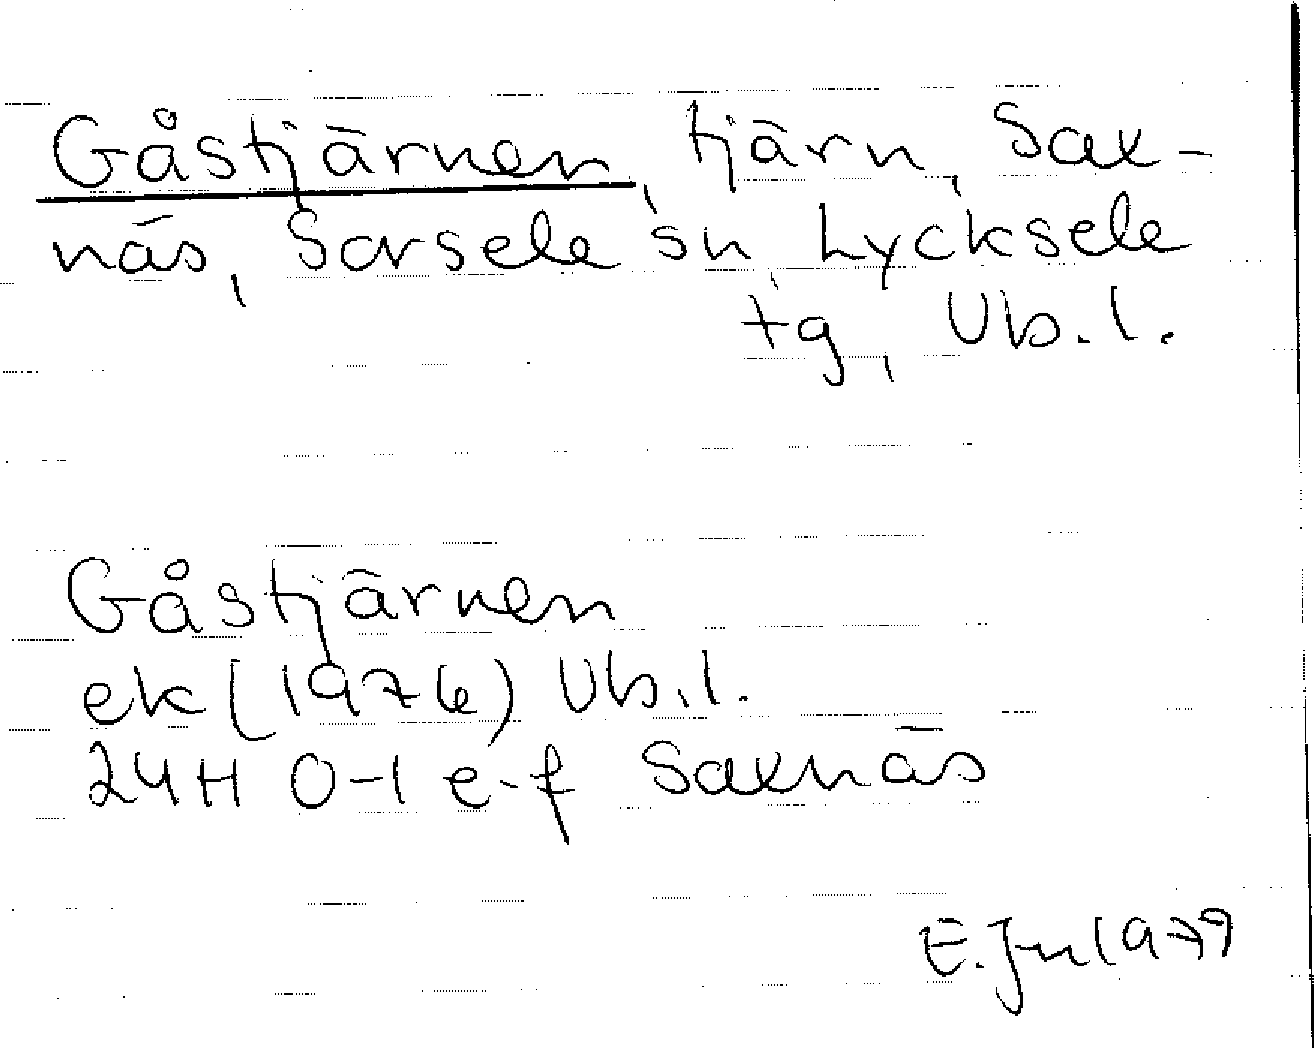 Gåstjärnen, tjärn, Sax-
näs, Sorsele sn, Lycksele
tg, Vb.l.
Gåstjärnen
ek (1976) Vb.l.
24H 0-1 e-f Saxnäs
E. Jn 1979